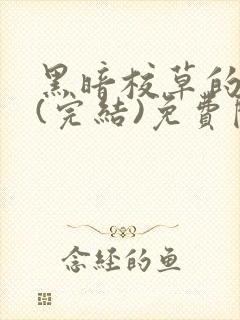 黑暗校草的
(完結)免費
念經的魚